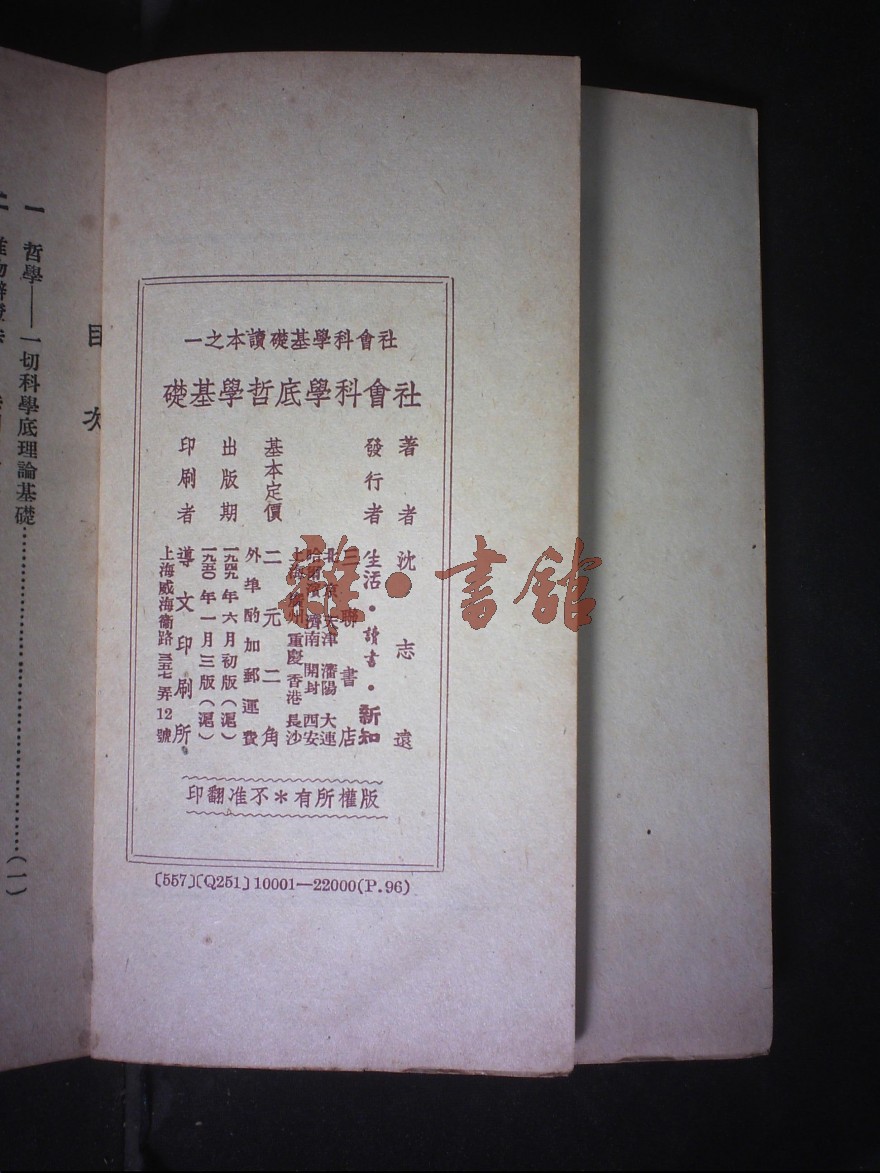 社會科學基礎讀本之一
社會科學底哲學基礎
著者 沈志遠
發行者 生活・讀書・新知
三聯書店
北京 天津 瀋陽 大連
哈爾濱 濟南 開封 西安
上海 廣州 重慶 香港 長沙
基本定價 二元二角
外埠酌加郵運費
出版期 一九四九年六月初版(滬)
一九五〇年一月三版(滬)
印刷者 導文印刷所
上海威海衞路三五七弄12號
版權所有*不准翻印
〔557〕〔Q251〕10001—22000(P.96)
目次
一 哲學——一切科學底理論基礎……(一)
二
雅・書館